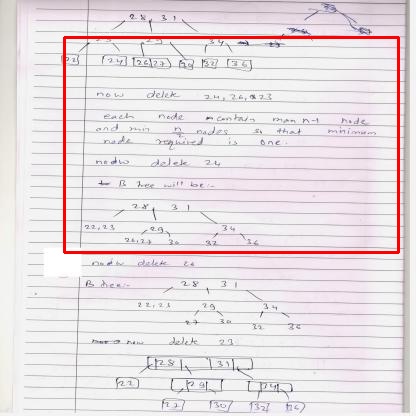 28 31
29 34
22 24 26 27 30 32 36
now delete 24, 26, 23
each node contain max n-1 node
and min n/2 nodes so that minimum
node required is one.
now delete 24
B tree will be:-
28 31
22,23 29 34
26,27 30 32 36
now delete 26
B tree:-
28 31
22,23 29 34
27 30 32 36
now delete 23
28 31
22 29 34
27 30 32 36